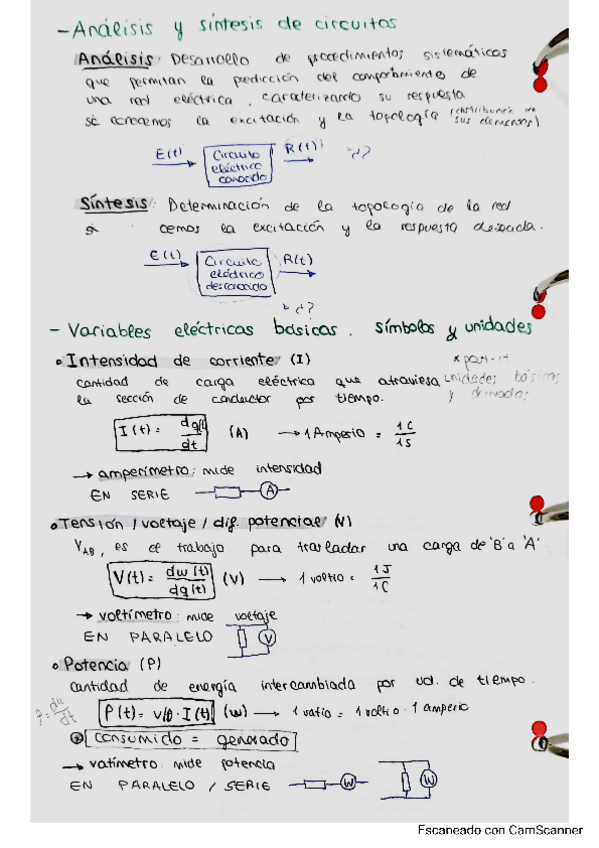 - Análisis y síntesis de circuitos
Análisis: Desarrollo de procedimientos sistemáticos
que permitan la predicción del comportamiento de
una red eléctrica, caracterizando su respuesta
si conocemos la excitación y la topología (distribución de sus elementos)
E(t) Circuito eléctrico conocido R(t)
¿?
Síntesis: Determinación de la topología de la red
si cemos la excitación y la respuesta deseada.
E(t) Circuito eléctrico desconocido R(t)
¿?
- Variables eléctricas básicas. Símbolos y unidades
Intensidad de corriente (I)
* post-it
unidades básicas
y derivadas
cantidad de carga eléctrica que atraviesa
la sección de conductor por tiempo.
I(t) = dq(t)/dt (A) → 1 Amperio = 1C/1S
→ amperímetro: mide intensidad
EN SERIE A
Tensión / voltaje / dif. potencial (V)
VAB, es el trabajo para trasladar una carga de 'B' a 'A'
V(t) = dw(t)/dq(t) (V) → 1 voltio = 1J/1C
→ voltímetro: mide voltaje
EN PARALELO V
Potencia (P)
cantidad de energía intercambiada por ud. de tiempo.
P = dw/dt
P(t) = V(t) · I(t) (W) → 1 vatio = 1 voltio · 1 amperio
consumido = generado
→ vatímetro: mide potencia
EN PARALELO / SERIE W W
Escaneado con CamScanner